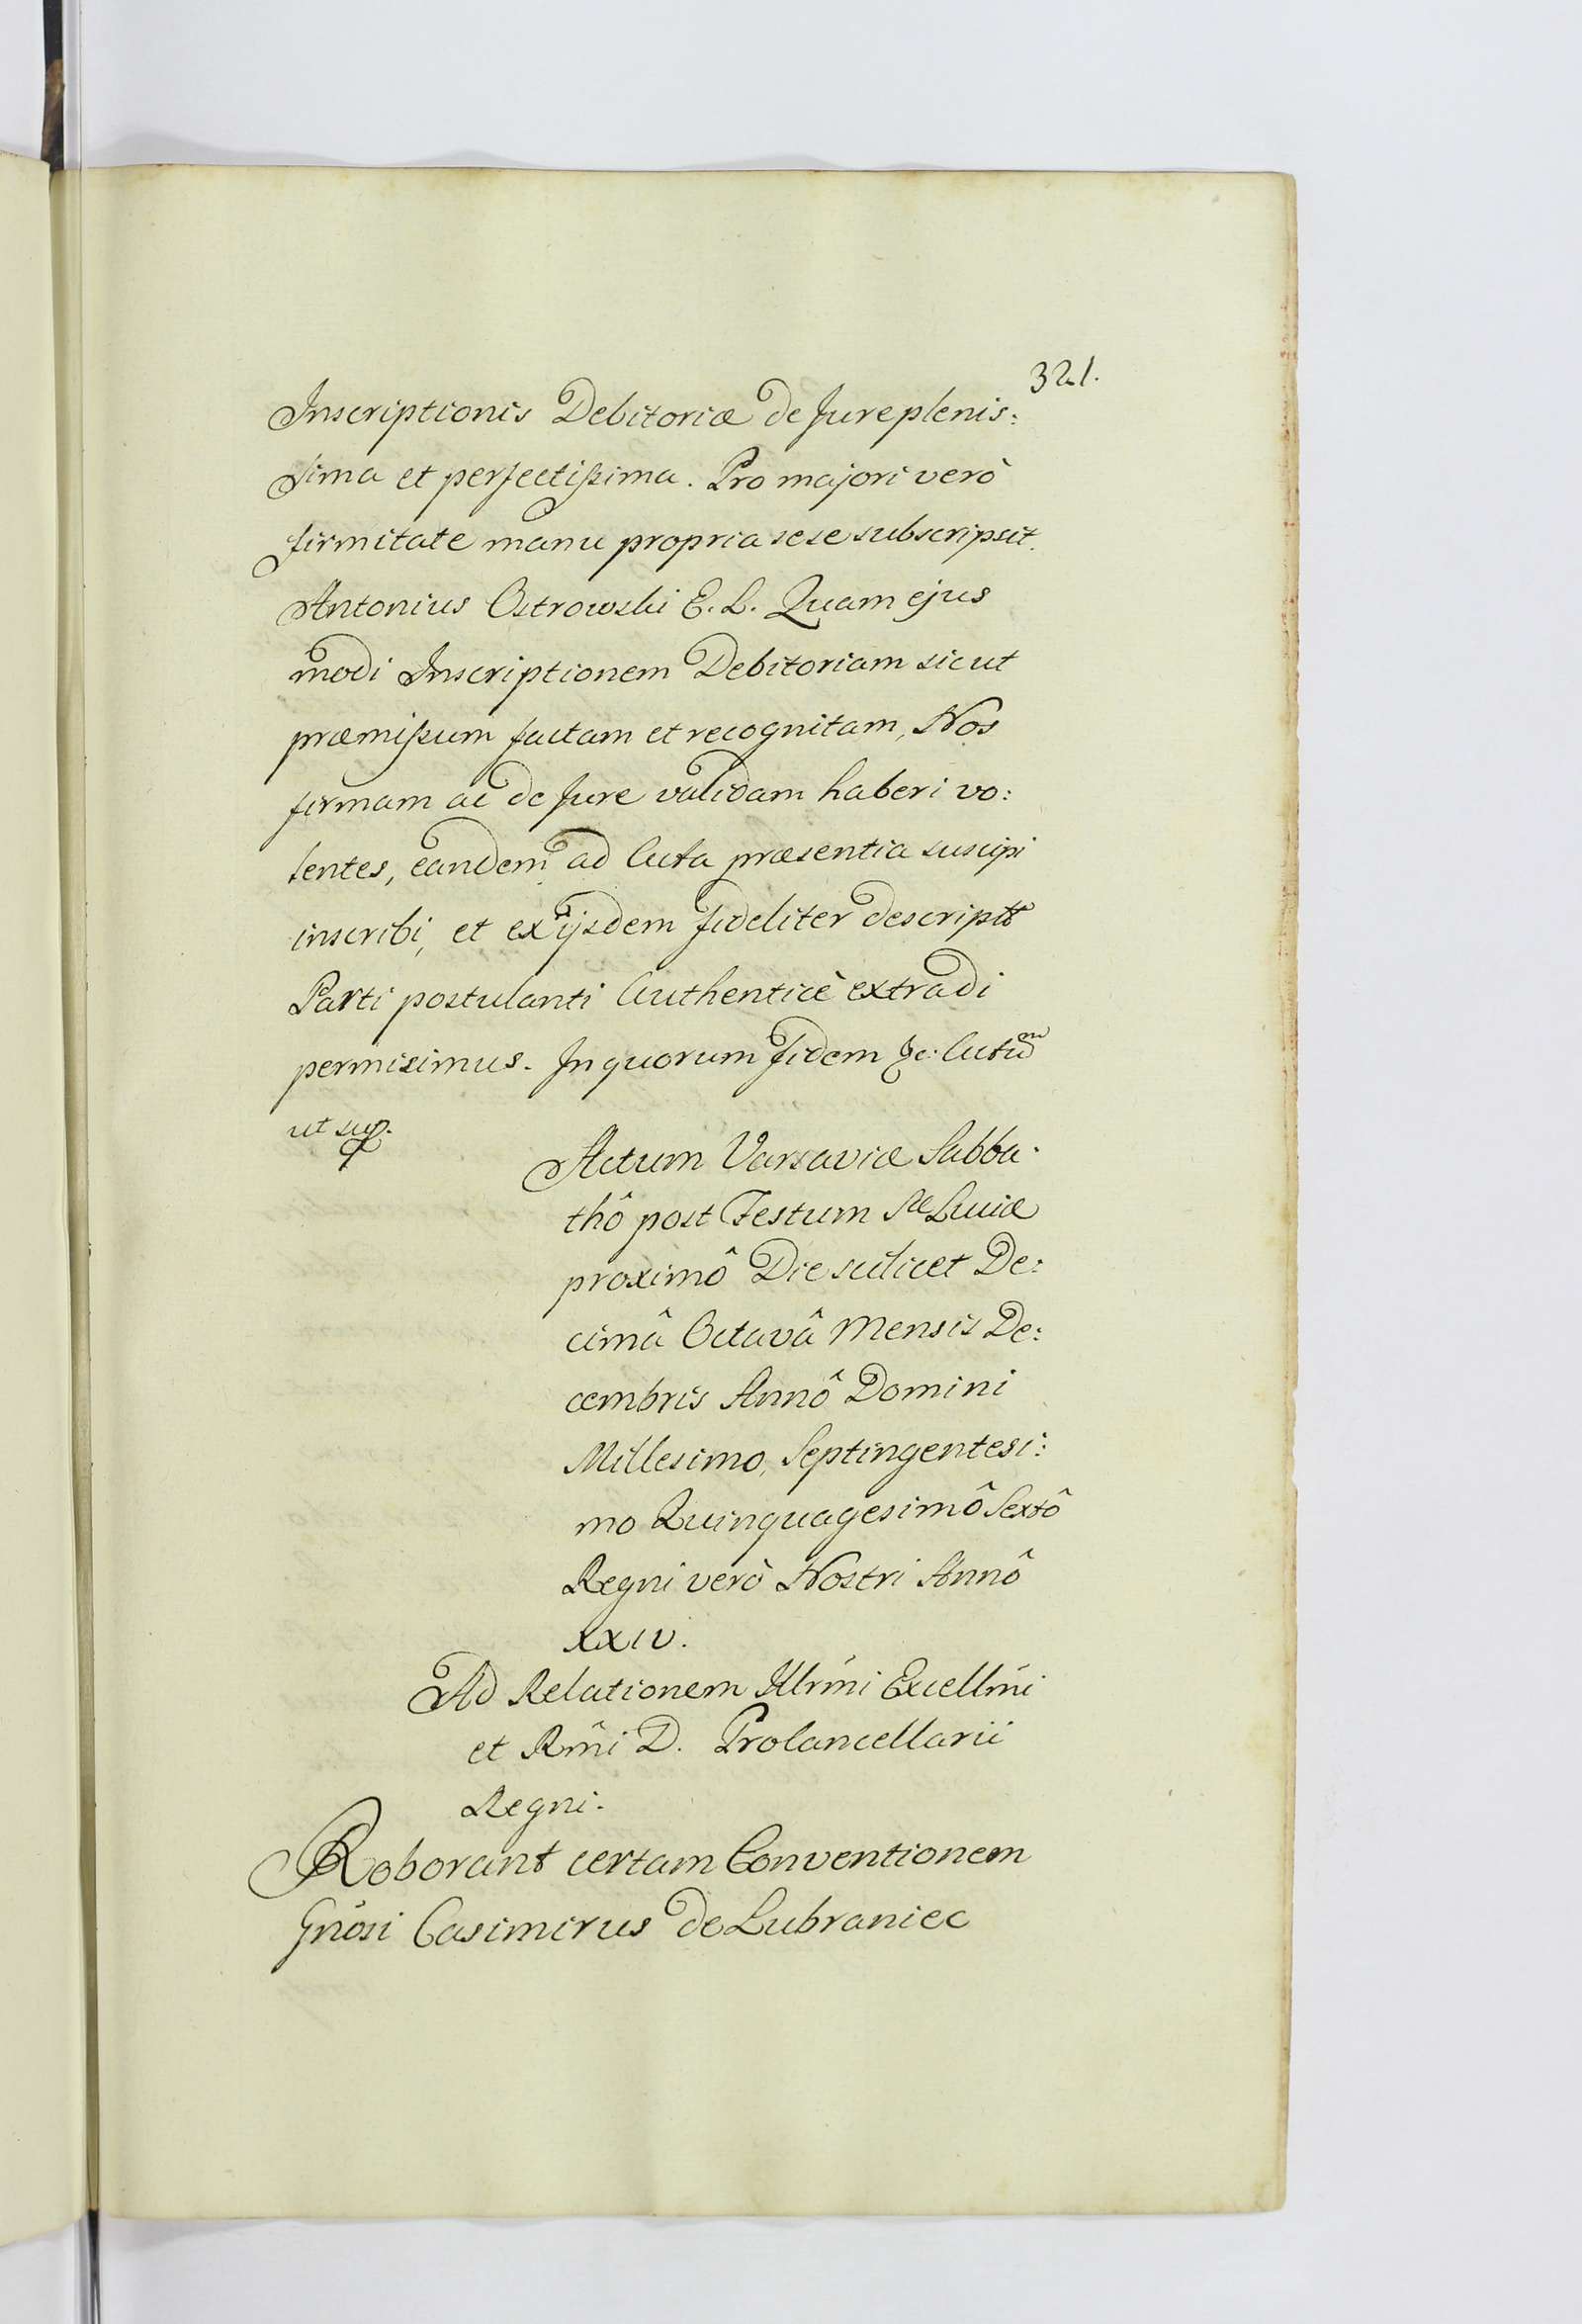 321.
Inscriptionis Debitoriæ de Jure plenis:
sima et perfectißima. Pro majori verò
firmitate manu propria sese subscripsit.
Antonius Ostrowski E. L. Quam ejus
modi Inscriptionem Debitoriam sicut
præmißum factam et recognitam, Nos
firmam ac de Jure validam haberi vo:
lentes, eandem ad Acta præsentia suscipi
inscribi, et ex ijsdem fideliter descriptã
Parti postulanti Authenticè extradi
permisimus. In quorum Fidem &c: Actũm
ut sup.
Actum Varsaviæ Sabba:
thô post Festum Sæ Luciæ
proximô Die scilicet De:
cimâ Octavâ Mensis De:
cembris Annô Domini
Millesimo, Septingentesi:
mo Quinquagesimô Sextô
Regni verò Nostri Annô
XXIV.
Ad Relationem Illrm̃i Excellm̃i
et Rm̃i D. Procancellarii
Regni.
Roborant certam Conventionem
Gnõsi Casimirus de Lubraniec